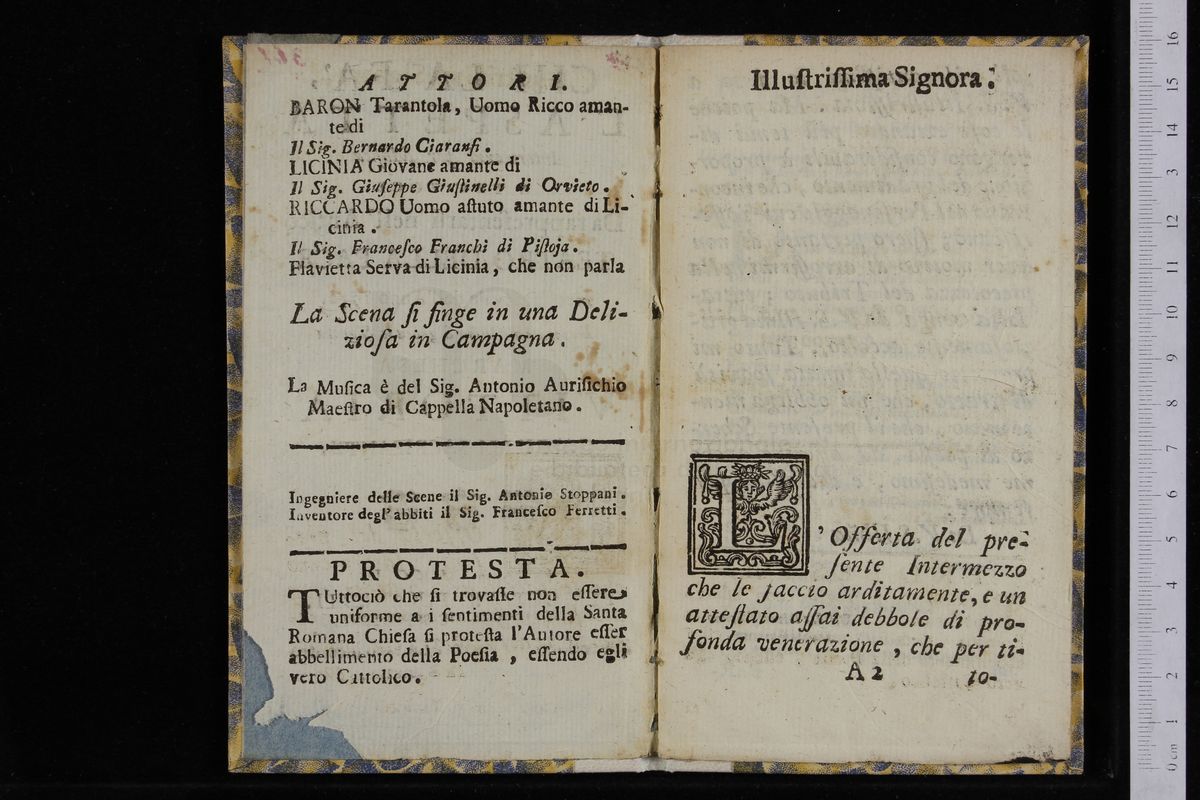 ATTORI.
BARON Tarantola, Uomo Ricco aman-
te di
Il Sig. Bernardo Ciaranfi.
LICINIA Giovane amante di
Il Sig. Giuſeppe Giuſtinelli di Orvieto.
RICCARDO Uomo aſtuto amante di Li-
cinia.
Il Sig. Franceſco Franchi di Piſtoja.
Flavietta Serva di Licinia, che non parla
La Scena ſi finge in una Deli-
zioſa in Campagna.
La Muſica è del Sig. Antonio Auriſichio
Maeſtro di Cappella Napoletano.
Ingegniere delle Scene il Sig. Antonio Stoppani.
Inventore degl'abbiti il Sig. Franceſco Ferretti.
PROTESTA.
TUttociò che ſi trovaſſe non eſſere
uniforme a i ſentimenti della Santa
Romana Chieſa ſi proteſta l'Autore eſſer
abbellimento della Poeſia, eſſendo egli
vero Cattolico.
Illuſtriſſima Signora.
L'Offerta del pre-
ſente Intermezzo
che le faccio arditamente, e un
atteſtato aſſai debbole di pro-
fonda venerazione, che per ti-
A 2 to-
16
15
14
13
12
11
10
9
8
7
6
5
4
3
2
1
0 cm